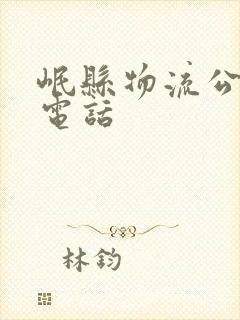 岷縣物流公
電話
林鈞